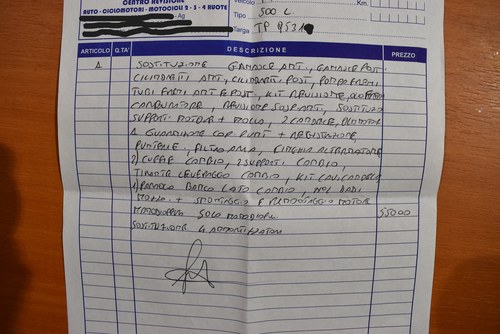 CENTRO REVISIONI
AUTO - CICLOMOTORI - MOTOCICLI 2 - 3 - 4 RUOTE
- Ag
Veicolo
Tipo 500 L Km.
Targa TP 9531
ARTICOLO Q.TA' DESCRIZIONE PREZZO
SOSTITUZIONE GANASCE ANT., GANASCE POST.
CILINDRETTI ANT, CILINDRETTI POST, POMPA FRENI
TUBI FRENI ANT E POST, KIT REVISIONE
CARBURATORE, REVISIONE SOSP. ANT, SOSTITUZ
SUPPORTI MOTORE + MOLLO, 2 CANDELE, OLIO MOTOR
GUARNIZIONE COP. PUNT + REGISTRAZIONE
PUNTERIE, FILTRO ARIA, CINGHIA ALTERNATORE
2 CUFFIE CAMBIO, 2 SUPPORTI CAMBIO,
TIRANTE LEVERAGGIO CAMBIO, KIT CAVI CANDELA
LATO CAMBIO, DADI
+ SMONTAGGIO E RIMONTAGGIO MOTORE
MANODOPERA SOLO MANODOPERA 550,00
SOSTITUZIONE 4 AMMORTIZZATORI